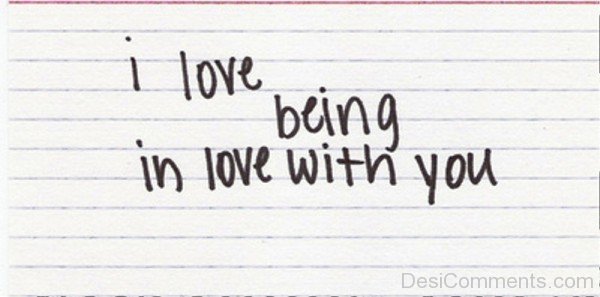 i love
being
in love with you
DesiComments.com